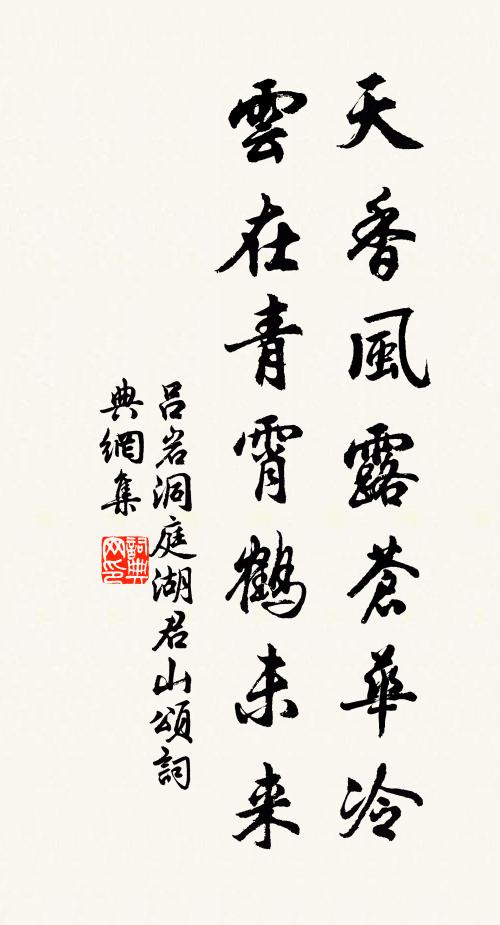 天香風露蒼華冷
雲在青霄鶴未来
吕岩洞庭湖君山頌詞
典網集
詞典
网印